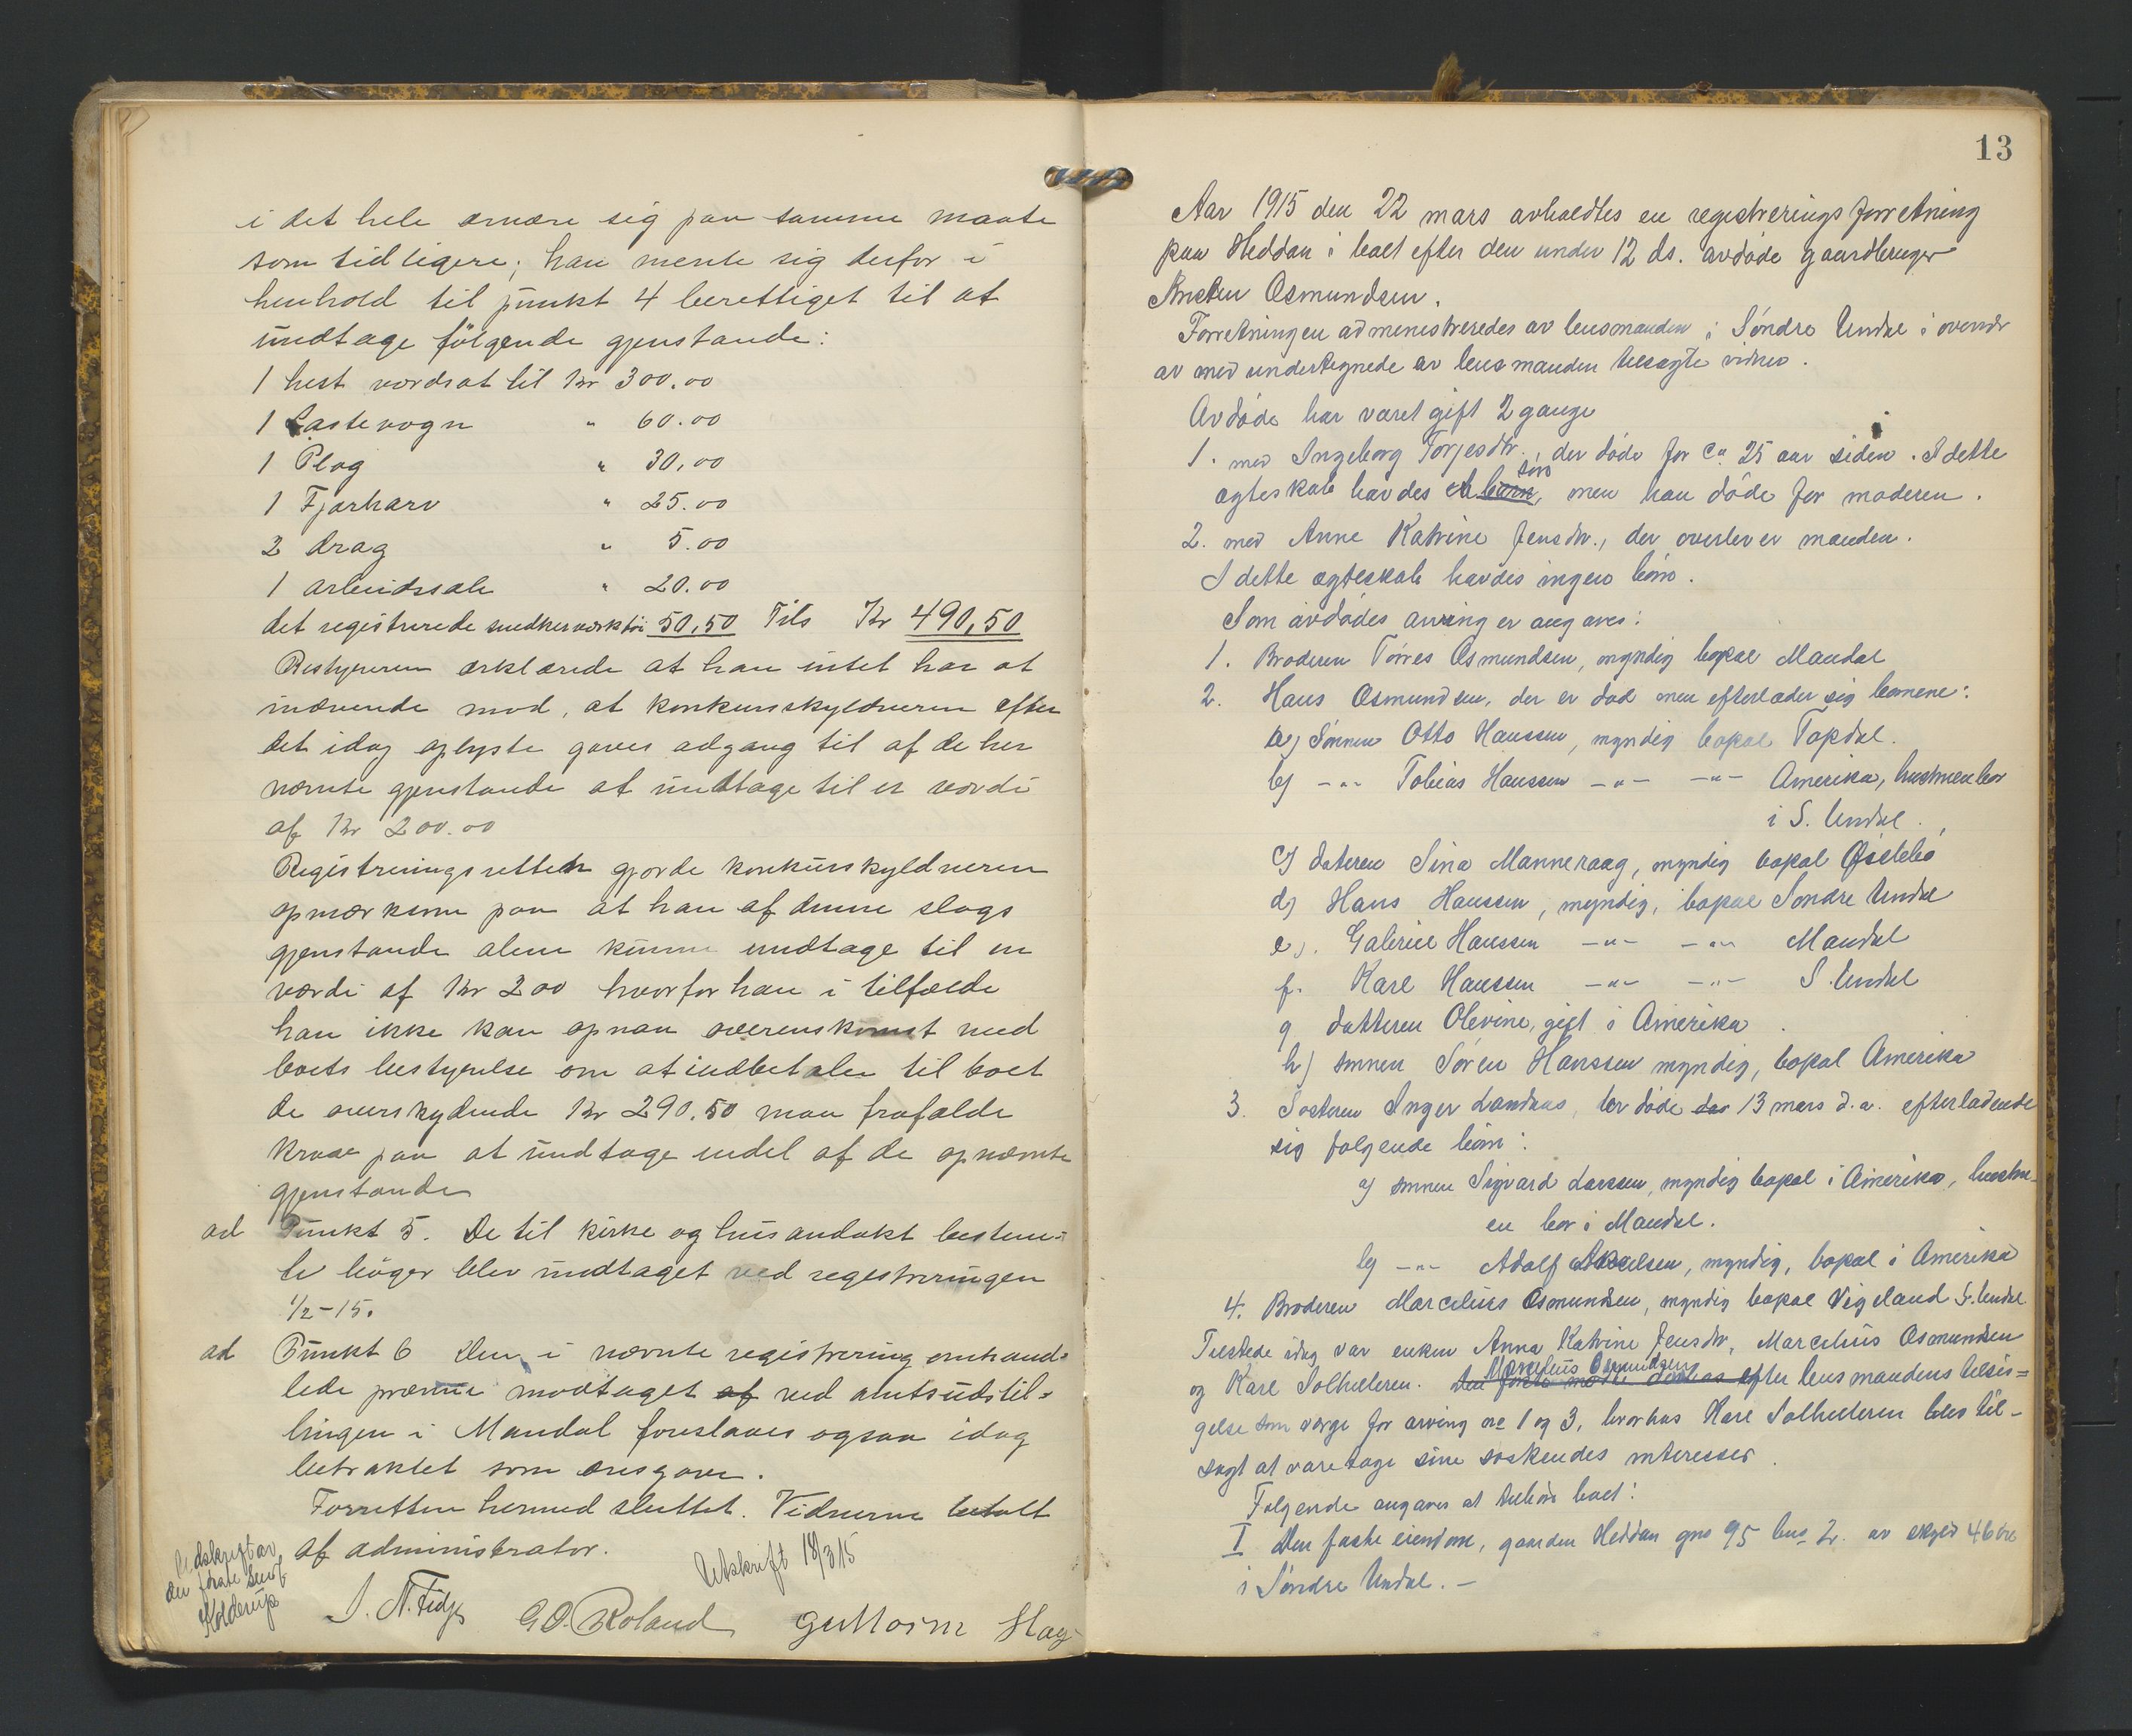 i det hele ernære sig paa samme maate
som tidligere; han mente sig derfor i
henhold til punkt 4 berettiget til at
undtage følgende gjenstande:
1 hest værdsat til Kr 300.00
1 Lastevogn " 60.00
1 Plog " 30,00
1 Fjærharv " 25.00
2 drag " 5.00
1 arbeidssele " 20.00
det registrerede snedkerværktøi 50,50 Tils Kr 490,50
Bestyreren erklærede at han intet har at
indvende mod, at konkursskyldneren efter
det idag oplyste gives adgang til af de her
nævnte gjenstande at undtage til en værdi
af Kr 200.00
Registreringsretten gjorde konkurskyldneren
opmærksom paa at han af denne slags
gjenstande alene kunne undtage til en
værdi af Kr 200 hvorfor han i tilfælde
han ikke kan opnaa overenskomst med
boets bestyrelse om at indbetale til boet
de overskydende Kr 290.50 maa frafalde
krav paa at undtage endel af de opnævnte
gjenstande
ad Punkt 5. De til kirke og husandakt bestem=
te bøger blev undtaget ved registreringen
1/2-15.
ad Punkt 6 Den i nævnte registrering omhand=
lede præmie modtaget af ved amtsudstil=
lingen i Mandal foreslaaes ogsaa idag
betraktet som æresgave.
Forretten hermed sluttet. Vidnerne betalt
af administrator.
Utskrift 18/3/15
Udskrift av
den første sendt
Kolderup
S. N. Fidje G O. Roland Guttorm Hay
13
Aar 1915 den 22 mars avholdtes en registreringsforretning
paa Heddan i boet efter den under 12 ds. avdøde gaardbruger
Ansten Osmundsen.
Forretningen administreredes av lensmanden i Søndre Undal i overvær
av med undertegnede av lensmanden tilsagte vidner.
Avdøde har været gift 2 gange
1. med Ingeborg Torjesdtr. der døde for ca 25 aar siden. I dette
søn
ægteskab havdes et barn, men han døde før moderen.
2. med Anne Katrine Jensdtr., der overlever manden.
I dette ægteskab havdes ingen børn.
Som avdødes arvinger angaves:
1. Broderen Tørres Osmundsen, myndig bopæl Mandal
2. Hans Osmundsen, der er død men efterlader sig børnene:
a) Sønnen Otto Hanssen, myndig bopæl Topdal.
b) -"- Tobias Hanssen -"- -"- Amerika, hustruen bor
i S. Undal.
c) datteren Sina Manneraag, myndig bopæl Øslebø
d) Hans Hanssen, myndig, bopæl Søndre Undal
e). Gabriel Hanssen -"- -"- Mandal
f. Karl Hanssen -"- -"- S. Undal
g datteren Olevine, gift i Amerika
h) sønnen Søren Hanssen myndig, bopæl Amerika
3. Søsteren Inger Landaas, der døde den 13 mars d.a. efterladende
sig følgende børn:
a) sønnen Sigvard Larssen, myndig bopæl i Amerika, hustru-
en bor i Mandal.
b) -"- Adolf Axelsen, myndig, bopæl i Amerika
4. Broderen Marcelius Osmundsen, myndig bopæl Vigeland S. Undal
Tilstede idag var enken Anna Katrine Jensdtr, Marcelius Osmundsen
Marcelius Osmundsen
og Karl Solhelleren. efter lensmandens tilsi=
gelse som værge for arving No 1 og 3, hvorhos Karl Solhelleren blev til-
sagt at varetage sine søskendes interesser.
Følgende angaves at tilhøre boet:
I Den faste eiendom, gaarden Heddan gno 95 bno 2. av skyld 46 øre
i Søndre Undal. -